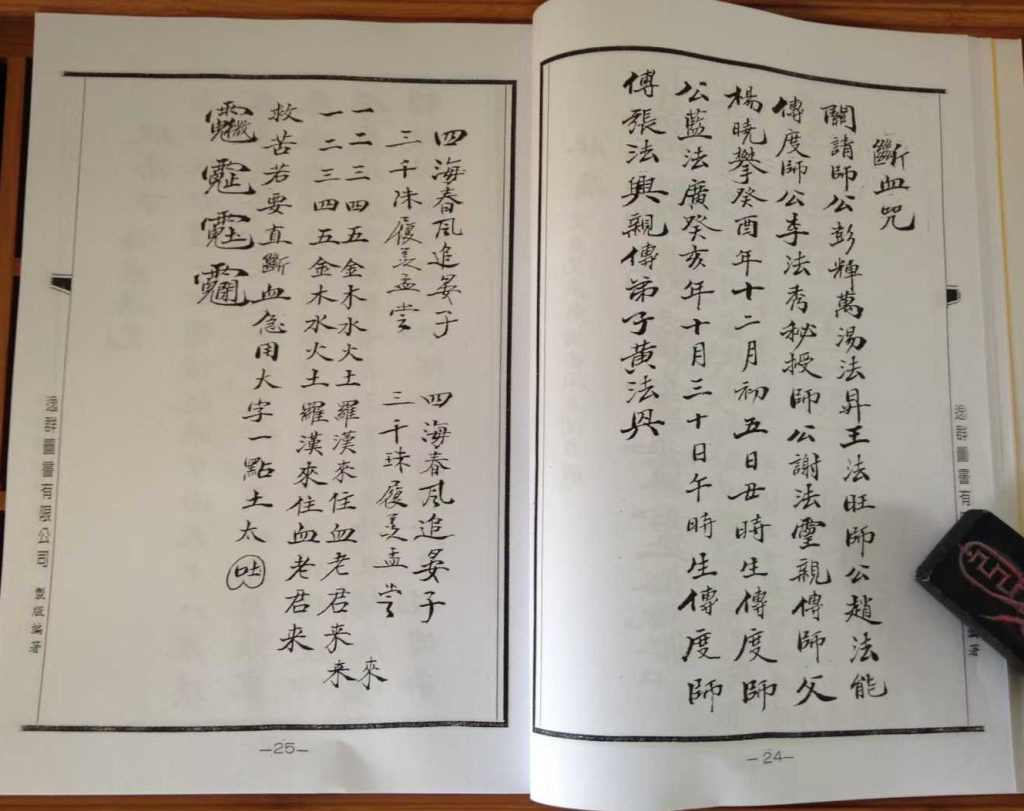 斷血咒
關請師公彭輝萬湯法昇王法旺師公趙法能
傳度師公李法秀秘授師公謝法靈親傳師父
楊曉攀癸酉年十二月初五日丑時生傳度師
公藍法廣癸亥年十月三十日午時生傳度師
傳張法興親傳弟子黃法興
逸群圖書有
著
—24—
四海春風追晏子 四海春風追晏子
三千珠履羨孟嘗 三千珠履羨孟嘗
一二三四五金木水火土羅漢來住血老君來 來
一二三四五金木水火土羅漢來住血老君来 来
救苦若要直斷血急用大字一點土太 吐
逸群圖書有限公司 製版編著
—25—